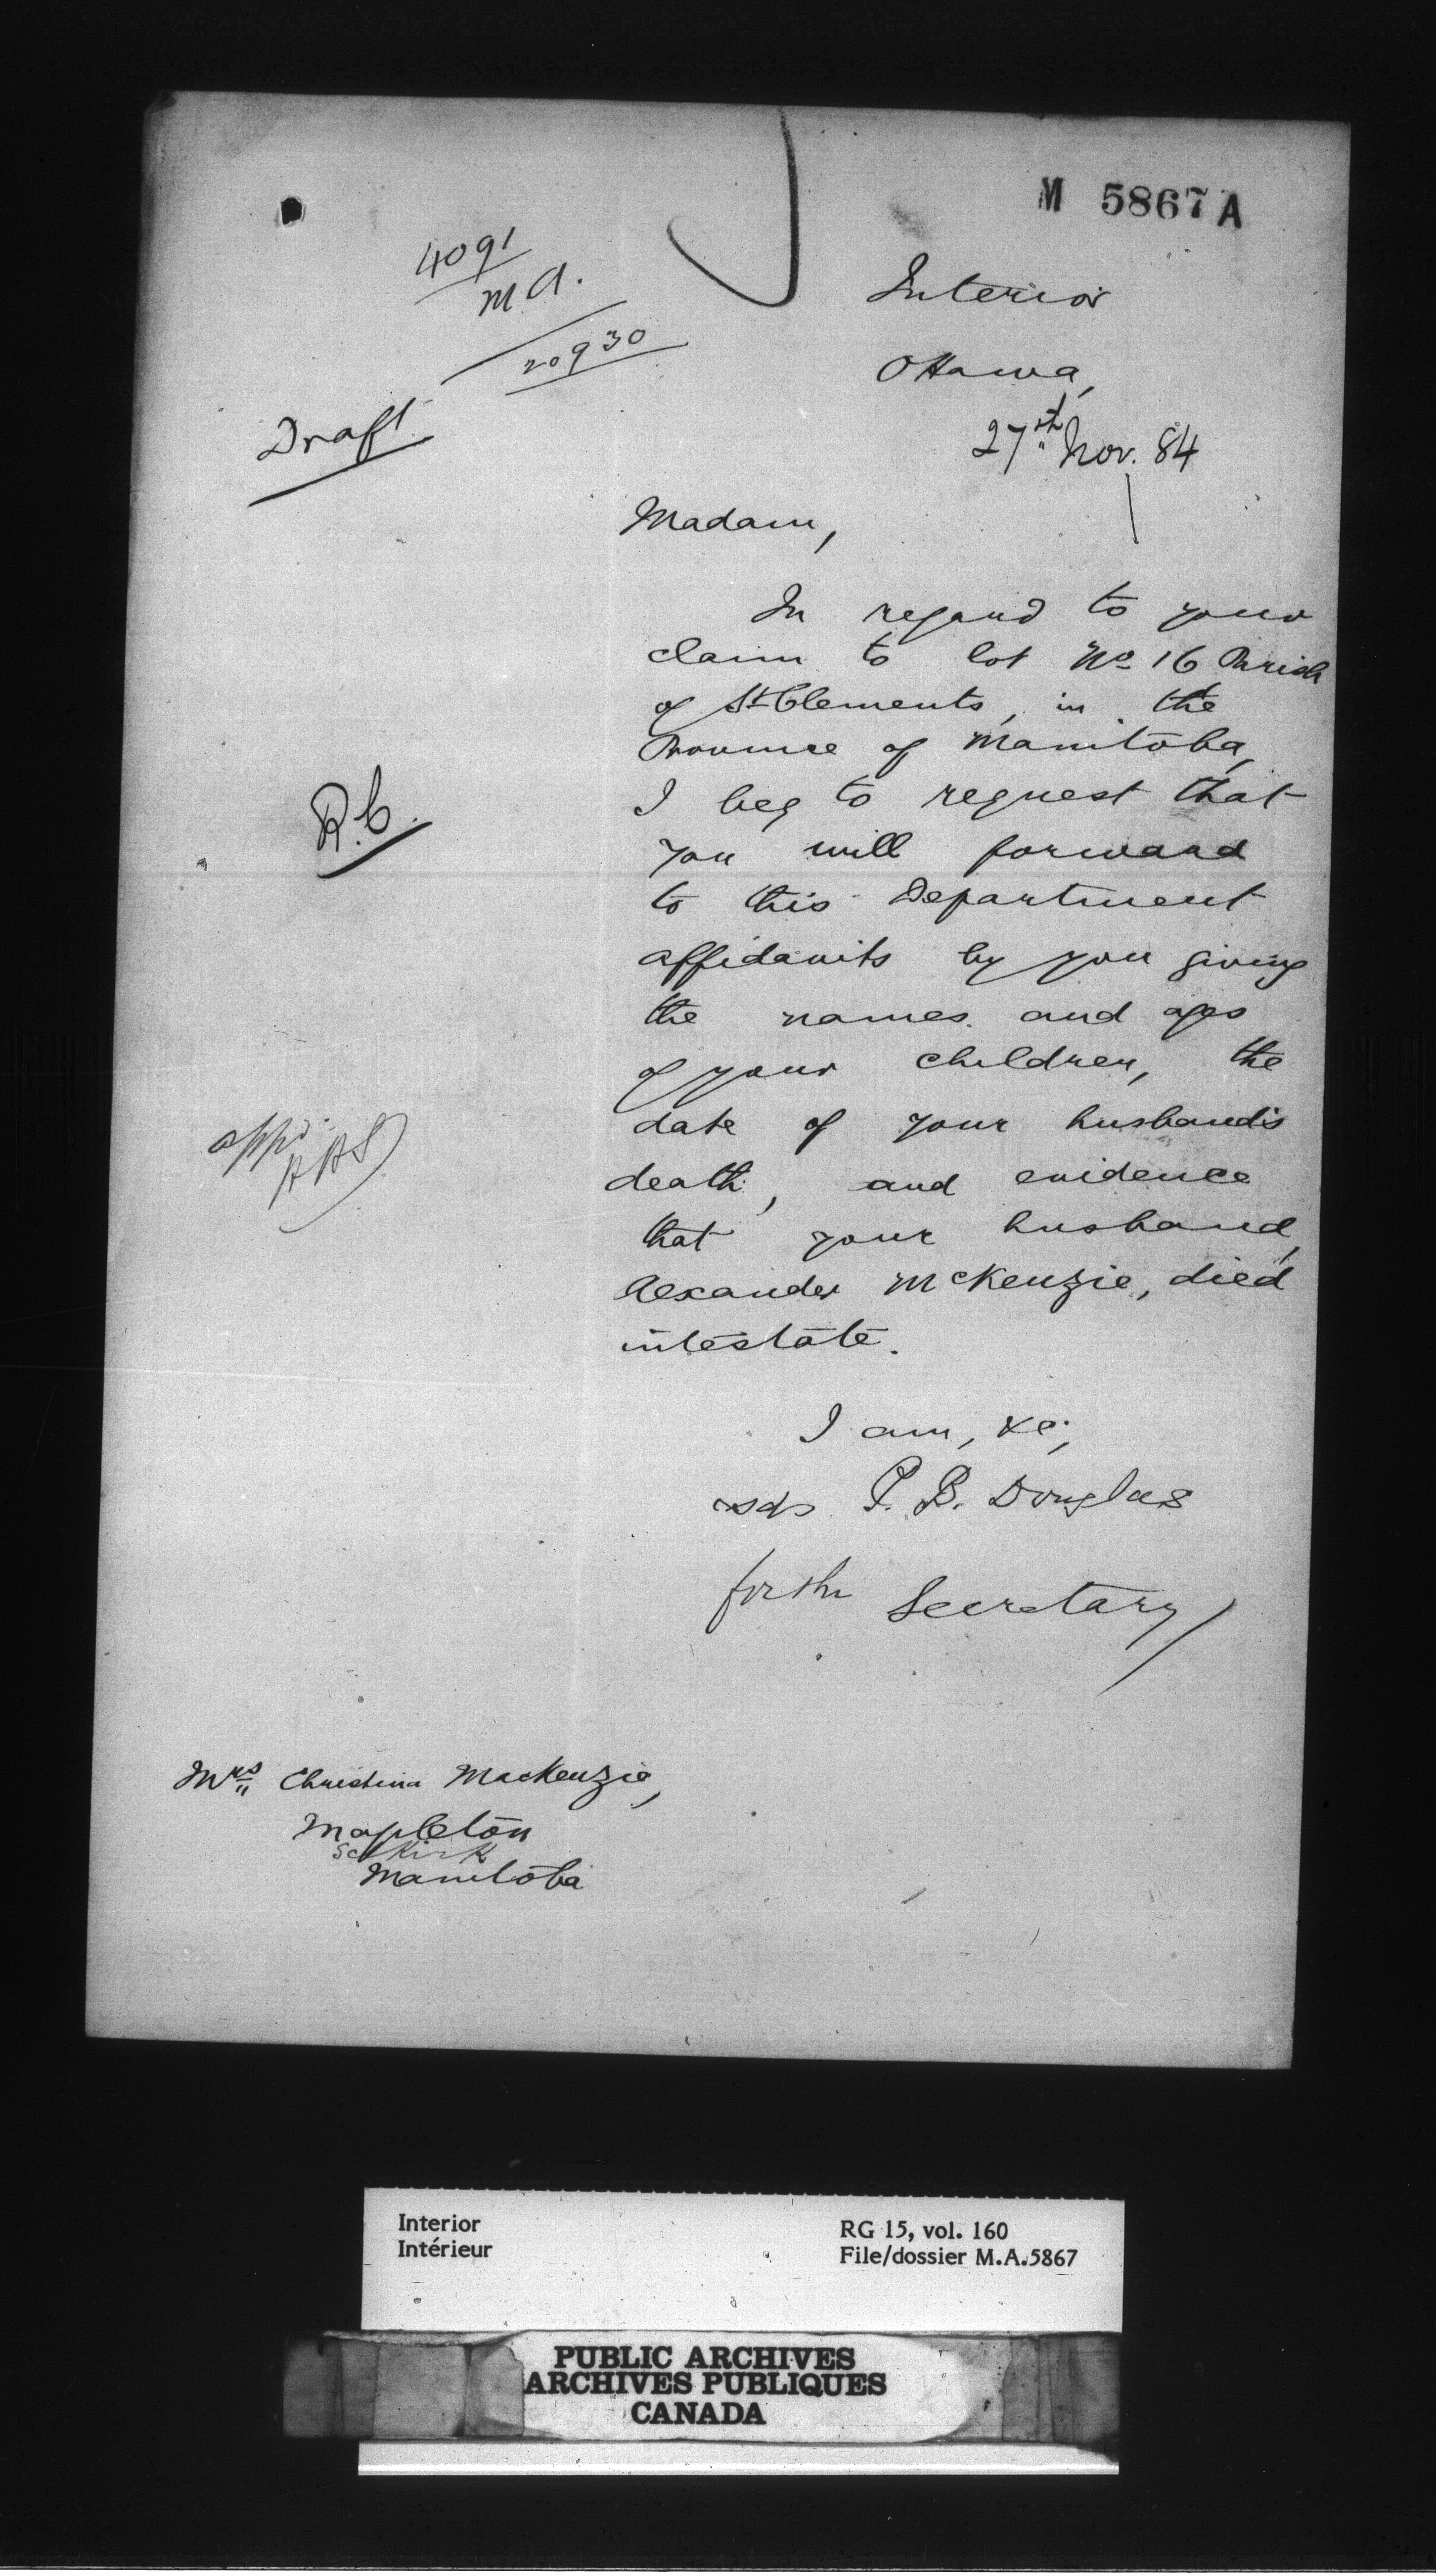 M 5867 A
4091
M.A.
20930
Draft
Interior
Ottawa,
27th Nov. 84
Madam,
In regard to your
claim to lot No 16 Parish
of St Clements, in the
Province of Manitoba,
I beg to request that
you will forward
to this Department
affidavits by you giving
the names and ages
of your children, the
date of your husband's
death, and evidence
that your husband,
Alexander McKenzie, died
intestate.
R.C.
I am, &c;
P. B. Douglas
for the Secretary
Mrs Christina MacKenzie,
Mapleton
Selkirk
Manitoba
Interior
Intérieur
RG 15, vol. 160
File/dossier M.A.5867
PUBLIC ARCHIVES
ARCHIVES PUBLIQUES
CANADA